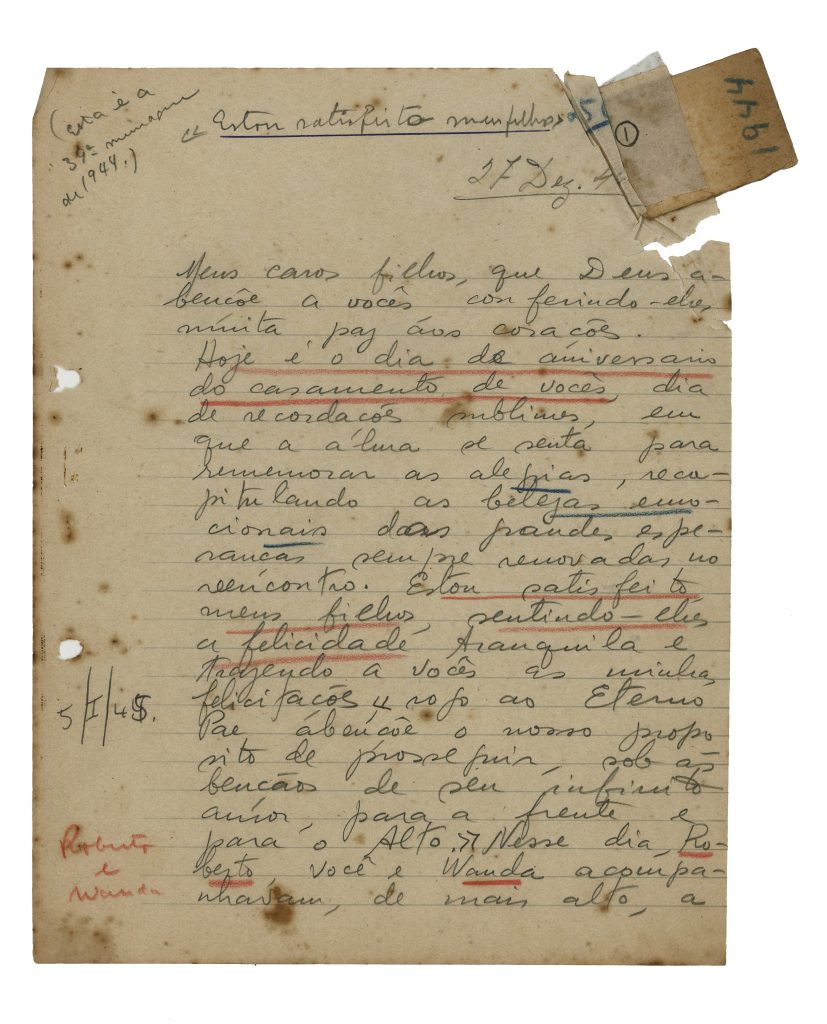 (Esta é a
39ª mensagem
de 1944.)
"Estou satisfeito meus filhos
1
1944
27 Dez. 4
Meus caros filhos, que Deus a-
bençõe a vocês conferindo-lhes
múita paz áos corações.
Hoje é o dia de aniversario
do casamento de vocês, dia
de recordações sublimes, em
que a álma se senta para
rememorar as alegrias, reca-
pitulando as belezas emo-
cionais das grandes espe-
ranças sempre renovadas no
reencontro. Estou satisfeito,
meus filhos, sentindo-lhes
a felicidade tranquila e
trazendo a vocês as minhas
felicitações, " rogo ao Eterno
Pae ábençõe o nosso propo
sito de prosseguir, sob ás
bençãos de seu infinito
amor, para a frente e
para o Alto." Nesse dia, Ro-
berto, você e Wanda acompa-
nhavam, de mais alto, a
5/I/45.
Roberto
e
Wanda